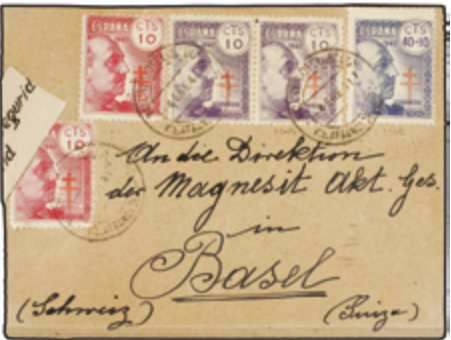 ESPAÑA CTS 10
ESPAÑA CTS 10
ESPAÑA CTS 10
ESPAÑA CTS 40+10
CTS 10
An die Direktion
der Magnesit Akt. Ges.
in
Basel
(Schweiz) (Suiza)